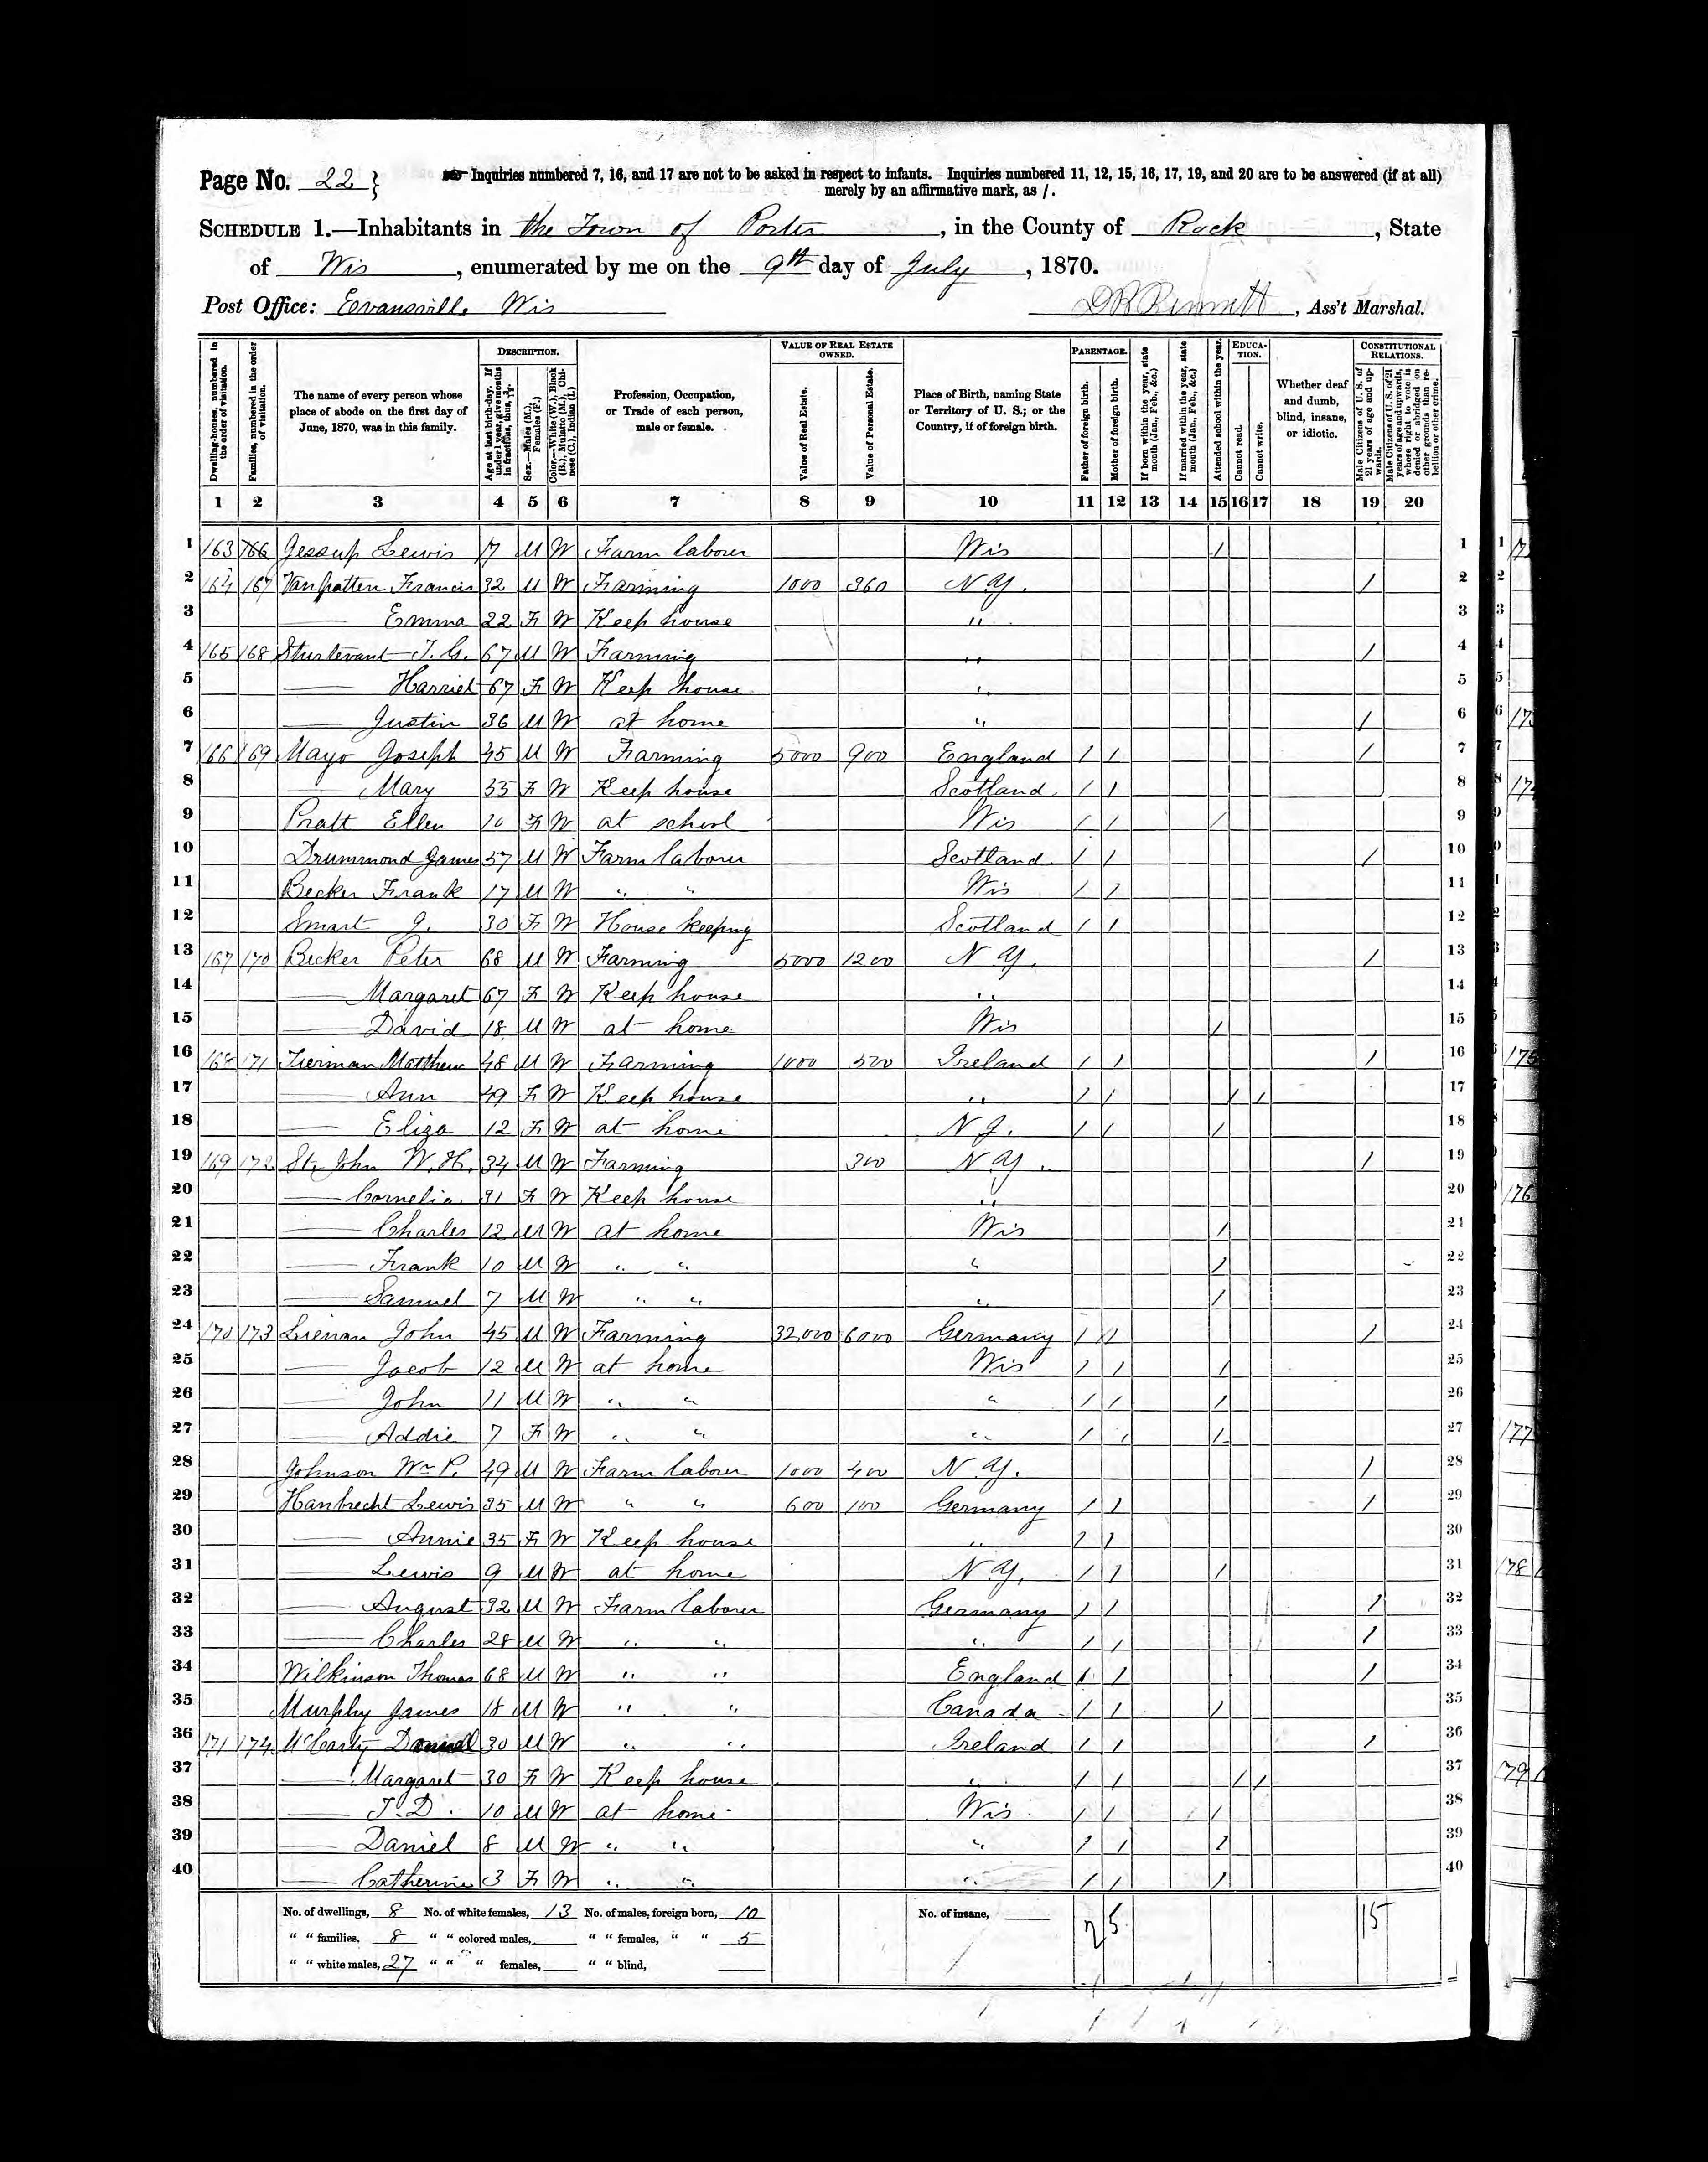 Page No. 22 } Inquiries numbered 7, 16, and 17 are not to be asked in respect to infants. Inquiries numbered 11, 12, 15, 16, 17, 19, and 20 are to be answered (if at all)
merely by an affirmative mark, as /.
SCHEDULE 1.—Inhabitants in the Town of Porter, in the County of Rock, State
of Wis, enumerated by me on the 9th day of July, 1870.
Post Office: Evansville Wis D R Bennett, Ass't Marshal.
Dwelling-houses, numbered in the order of visitation.
Families, numbered in the order of visitation.
The name of every person whose place of abode on the first day of June, 1870, was in this family.
DESCRIPTION.
Age at last birth-day. If under 1 year, give months in fractions, thus,
Sex.—Males (M.), Females (F.)
Color.—White (W.), Black (B.), Mulatto (M.), Chinese (C.), Indian (I.)
Profession, Occupation, or Trade of each person, male or female.
VALUE OF REAL ESTATE OWNED.
Value of Real Estate.
Value of Personal Estate.
Place of Birth, naming State or Territory of U. S.; or the Country, if of foreign birth.
PARENTAGE.
Father of foreign birth.
Mother of foreign birth.
If born within the year, state month (Jan., Feb., &c.)
If married within the year, state month (Jan., Feb., &c.)
Attended school within the year.
EDUCATION.
Cannot read.
Cannot write.
Whether deaf and dumb, blind, insane, or idiotic.
CONSTITUTIONAL RELATIONS.
Male Citizens of U. S. of 21 years of age and upwards.
Male Citizens of U. S. of 21 years of age and upwards, whose right to vote is denied or abridged on other grounds than rebellion or other crime.
1 2 3 4 5 6 7 8 9 10 11 12 13 14 15 16 17 18 19 20
1 163 166 Jessup Lewis 17 M W Farm laborer Wis / 1
2 164 167 Vanpatten Francis 32 M W Farming 1000 360 N Y. / 2
3 —— Emma 22 F W Keep house " 3
4 165 168 Sturtevant J. G. 67 M W Farming " / 4
5 —— Harriet 67 F W Keep house " 5
6 —— Justin 36 M W at home " / 6
7 166 169 Mayo Joseph 45 M W Farming 5000 900 England / / / 7
8 —— Mary 55 F W Keep house Scotland / / 8
9 Pratt Ellen 10 F W at school Wis / / / 9
10 Drummond James 57 M W Farm laborer Scotland / / / 10
11 Becker Frank 17 M W " " Wis / / 11
12 Smart J. 30 F W House keeping Scotland / / 12
13 167 170 Becker Peter 68 M W Farming 5000 1200 N Y. / 13
14 —— Margaret 67 F W Keep house " 14
15 —— David 18 M W at home Wis / 15
16 168 171 Tierman Matthew 48 M W Farming 1000 500 Ireland / / / 16
17 —— Ann 49 F W Keep house " / / / / 17
18 —— Eliza 12 F W at home N J. / / / 18
19 169 172 St, John W. H. 34 M W Farming 300 N Y. / 19
20 —— Cornelia 31 F W Keep house " 20
21 —— Charles 12 M W at home Wis / 21
22 —— Frank 10 M W " " " / 22
23 —— Samuel 7 M W " " " / 23
24 170 173 Lienau John 45 M W Farming 32,000 6000 Germany / / / 24
25 —— Jacob 12 M W at home Wis / / / 25
26 —— John 11 M W " " " / / / 26
27 —— Addie 7 F W " " " / / / 27
28 Johnson Wm P. 49 M W Farm laborer 1000 400 N Y. / 28
29 Hanbrecht Lewis 35 M W " " 600 100 Germany / / / 29
30 —— Annie 35 F W Keep house " / / 30
31 —— Lewis 9 M W at home N Y. / / / 31
32 —— August 32 M W Farm laborer Germany / / / 32
33 —— Charles 28 M W " " " / / / 33
34 Wilkinson Thomas 68 M W " " England / / / 34
35 Murphy James 18 M W " " Canada / / / 35
36 171 174 McCarty Daniel 30 M W " " Ireland / / / 36
37 —— Margaret 30 F W Keep house " / / / / 37
38 —— T. D. 10 M W at home Wis / / / 38
39 —— Daniel 8 M W " " " / / / 39
40 —— Catherine 3 F W " " " / / / 40
No. of dwellings, 8 No. of white females, 13 No. of males, foreign born, 10 No. of insane, 25 15
" " families, 8 " " colored males, " " females, " " 5
" " white males, 27 " " " females, " " blind,